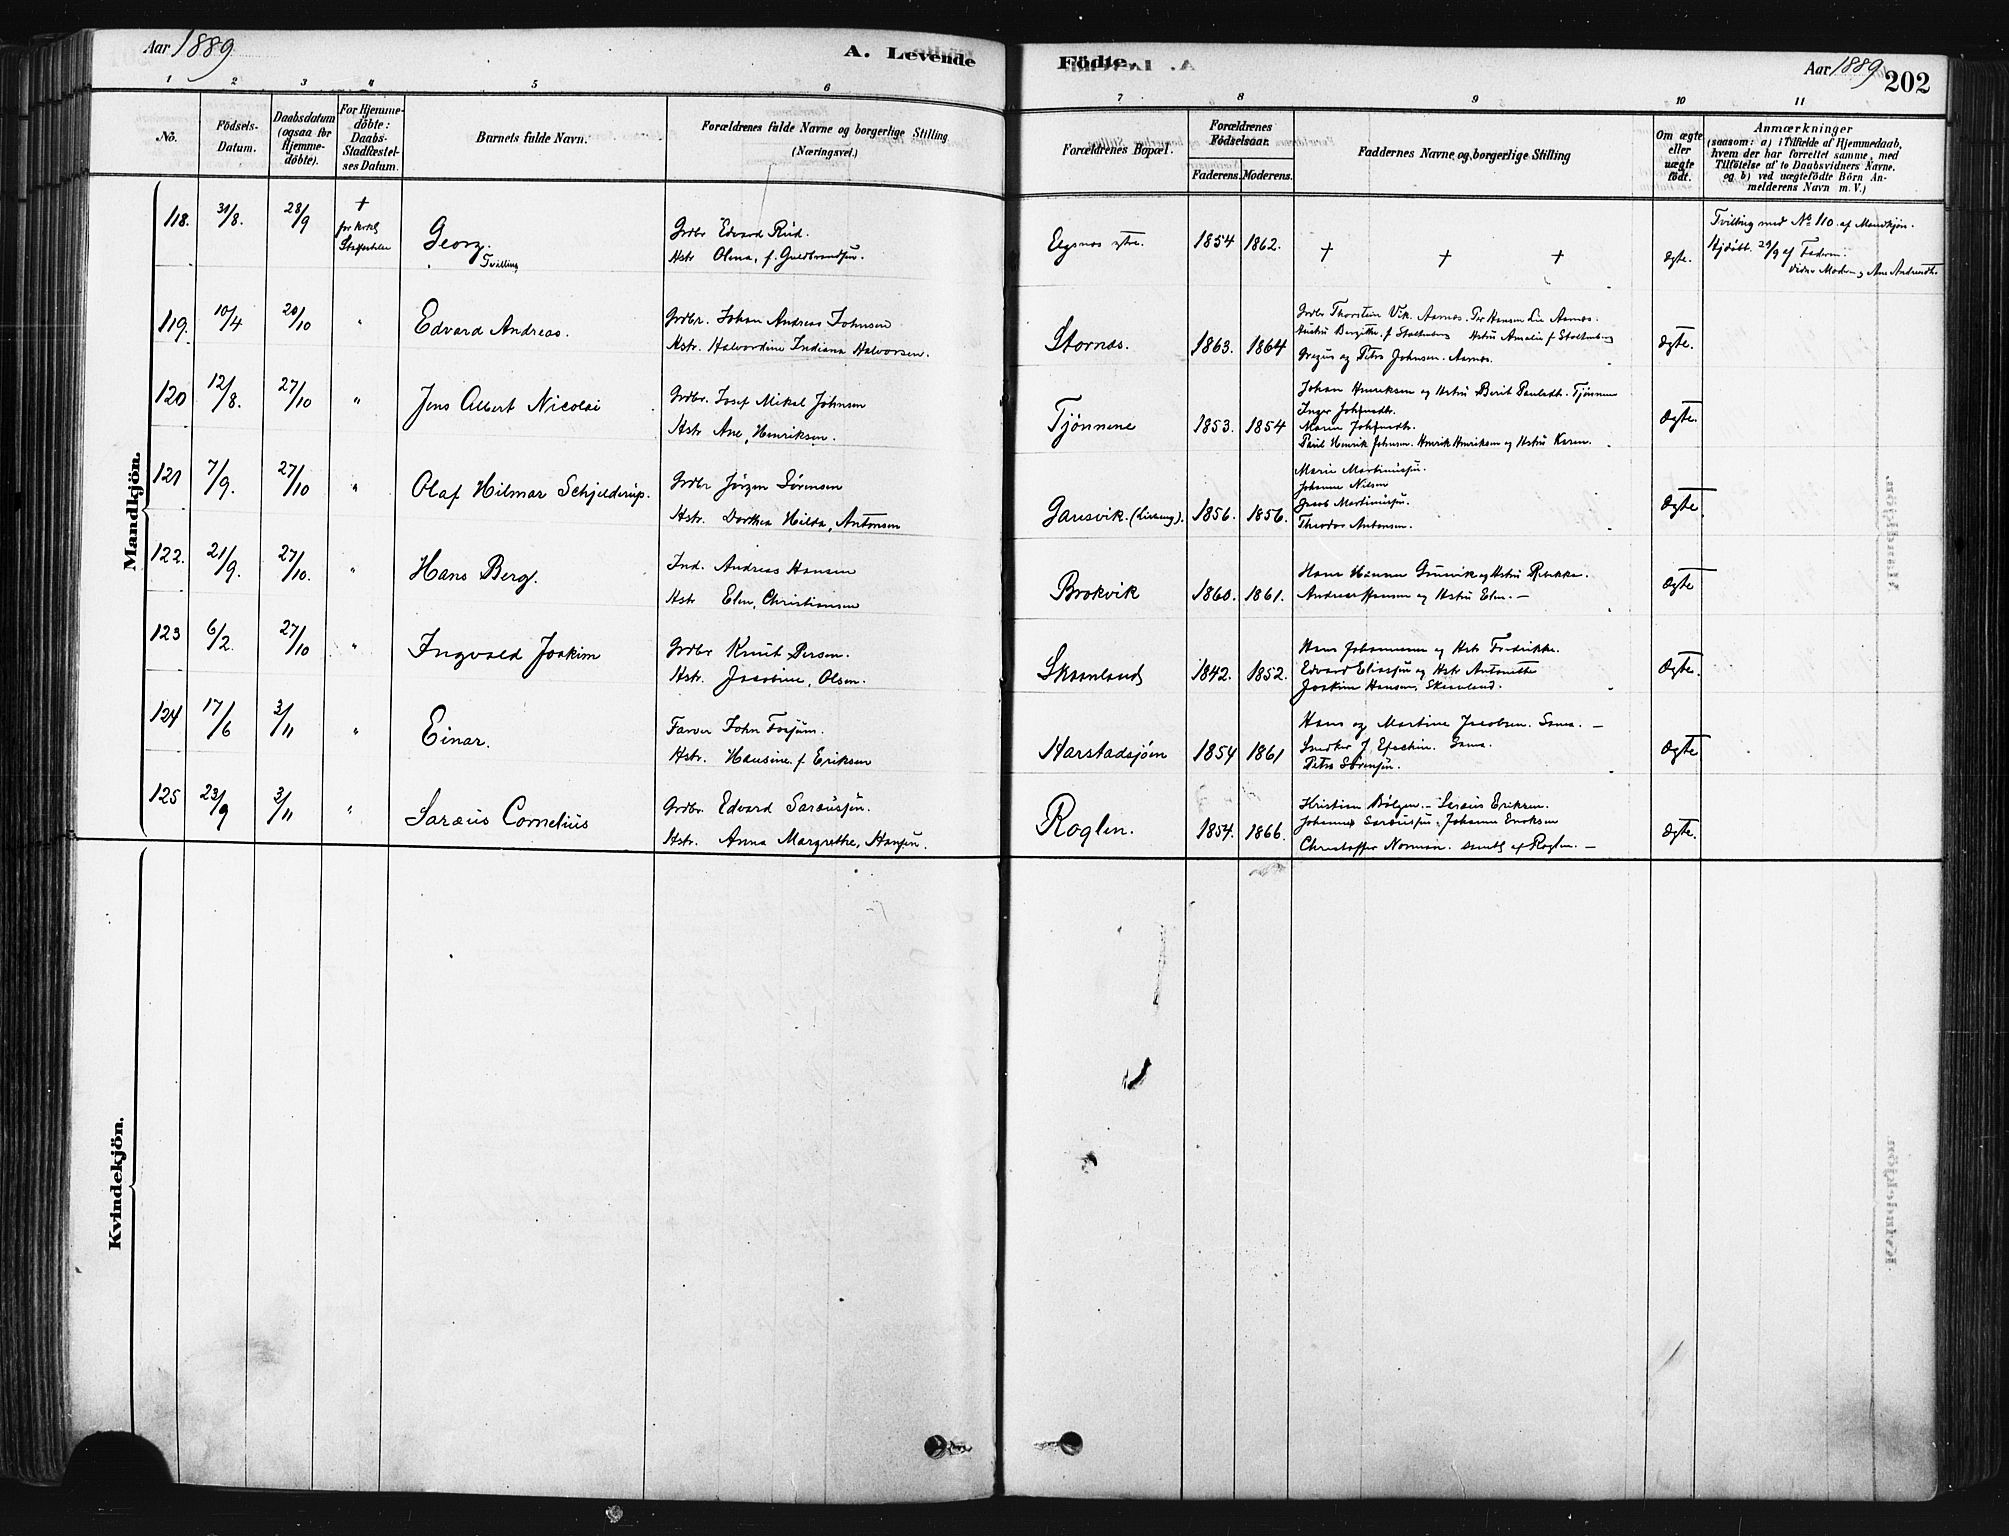 Aar 1889
A. Levende
Födte.
Aar 1889
202
1 2 3 4 5 6 7 8 9 10 11
No.
Födsels-
Datum.
Daabsdatum
(ogsaa for
Hjemme-
döbte).
For Hjemme-
döbte:
Daabs-
Stadfæstel-
ses Datum.
Barnets fulde Navn.
Forældrenes fulde Navne og borgerlige Stilling
(Næringsvei.)
Forældrenes Bopæl.
Forældrenes
Födselsaar.
Faderens. Moderens.
Faddernes Navne og borgerlige Stilling
Om ægte
eller
uægte
födt.
Anmærkninger
(saasom: a) i Tilfælde af Hjemmedaab,
hvem der har forrettet samme, med
Tilföielse af to Daabsvidners Navne.
og b) ved uægtefödte Börn An-
melderens Navn m. V.)
Mandkjön.
118. 31/8. 28/9 +
Georg.
Tvilling
Grdbr Edvard Rød.
Hstr Olena, f. Guldbrandsen.
Elgsnes ytre. 1854 1862. + + + Ægte.
Tvilling med No 110 af Mandkjøn.
Hjdøbt 29/9 af Faderen.
119. 10/4 20/10 "
Edvard Andreas.
Grdbr. Johan Andreas Johnsen
Hstr. Halvardine Indiana Halvorsen.
Stornes. 1863. 1864
Grdbr Thorstein Vik. Aarnes. Per Hansen Lie Aarnes.
Hustru Bergitte f. Stoltenberg Hstru Amalie f Stoltenberg
og Petra Johnsen. Aarnes.
Ægte.
120 12/8. 27/10 "
Jens Albert Nicolai
Grdbr. Josef Mikal Johnsen
Hstr Ane, Henriksen.
Tjönnene 1853. 1854
Johan Henriksen og Hstru Berit Paulsdt. Tjønnene
Inger
Maren
Paul Henrik Johnsen. Henrik Henriksen og Hstru Karen.
Ægte.
121 7/9. 27/10 "
Olaf Hilmar Schjelderup.
Grdbr Jørgen Sørensen
Hstr. Dorthea Hilda, Antonsen
Gansvik. 1856. 1856.
Marie Martinussen.
Johanna Nilsen
Jacob Martinussen.
Theodor Antonsen.
Ægte.
122. 21/9. 27/10. "
Hans Berg.
Ind. Andreas Hansen
Hstr Elen, Christiansen
Brokvik 1860. 1861.
Hans Hansen og Hstru Rebekka.
Andreas Hansen og Hstru Elen. –
Ægte
123 6/2. 27/10 "
Ingvald Joakim
Grdbr Knut Persen.
Hstr. Jacobine, Olsen.
Skaanland 1842. 1852.
Hans Johannesen og Hstr Fredrikke.
Edvard Eliassen og Hstr Antonette
Joakim Hansen, Skaanland.
Ægte.
124 17/6 3/11 "
Einar.
Farver John Fosjum.
Hstr. Hansine f. Eriksen
Harstadsjöen 1854 1861
Hans og Martine Jacobsen. Sama. –
Snedker J. Sama.
Petra Sørensen.
Ægte
125 23/9 3/11 "
Saræus Cornelius
Grdbr. Edvard Saræussen.
Hstr. Anna Margrethe, Hansen.
Roglen. 1854. 1866.
Kristian – Saræus Eriksen.
Johannes Saræussen, Johanna Eriksen
Christoffer Norman. samtl af Roglen. –
Ægte.
Kvindekjön.